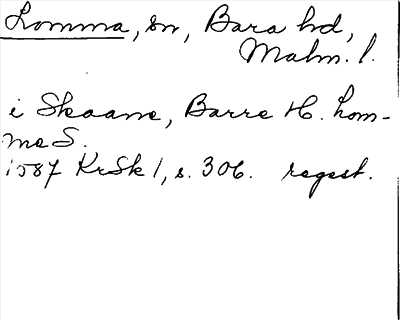 Lomma, sn, Bara hd,
Malm. l.
i Skaane, Barre H. Lom-
me S.
1587 KrSk 1, s. 306. regest.